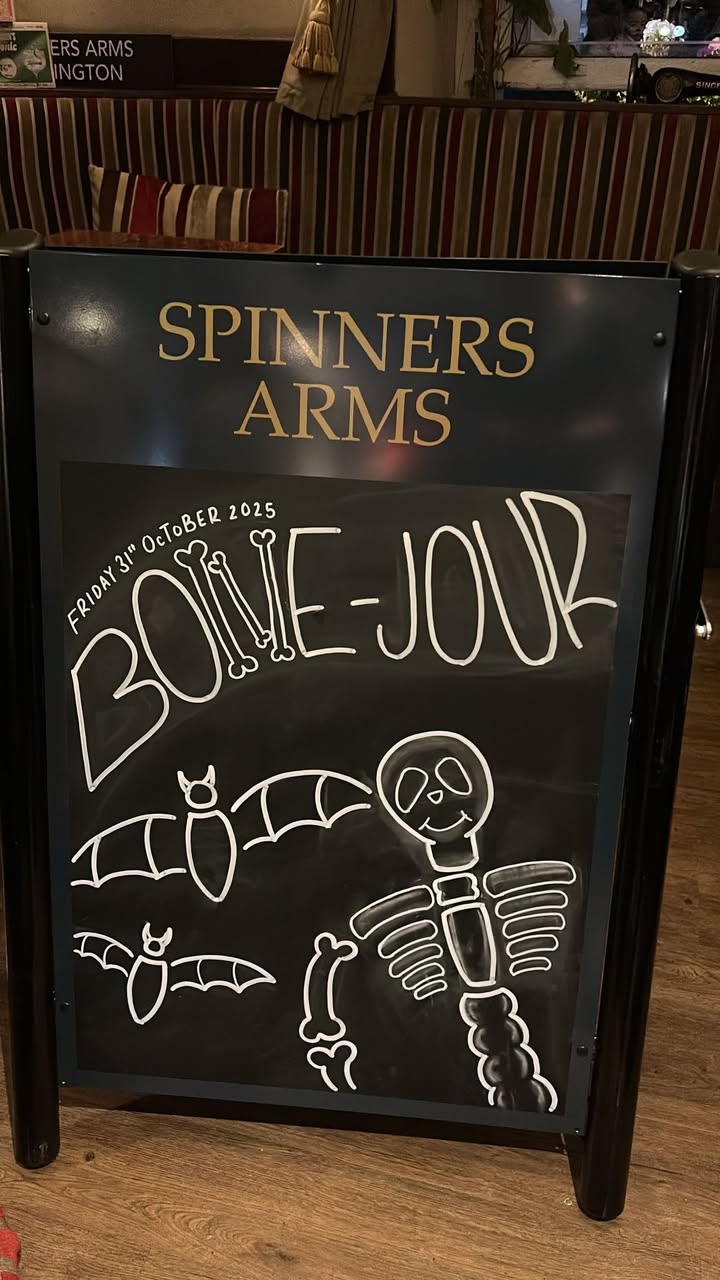 ERS ARMS
INGTON
SINGER
SPINNERS
ARMS
FRIDAY 31ST OCTOBER 2025
BONE-JOUR